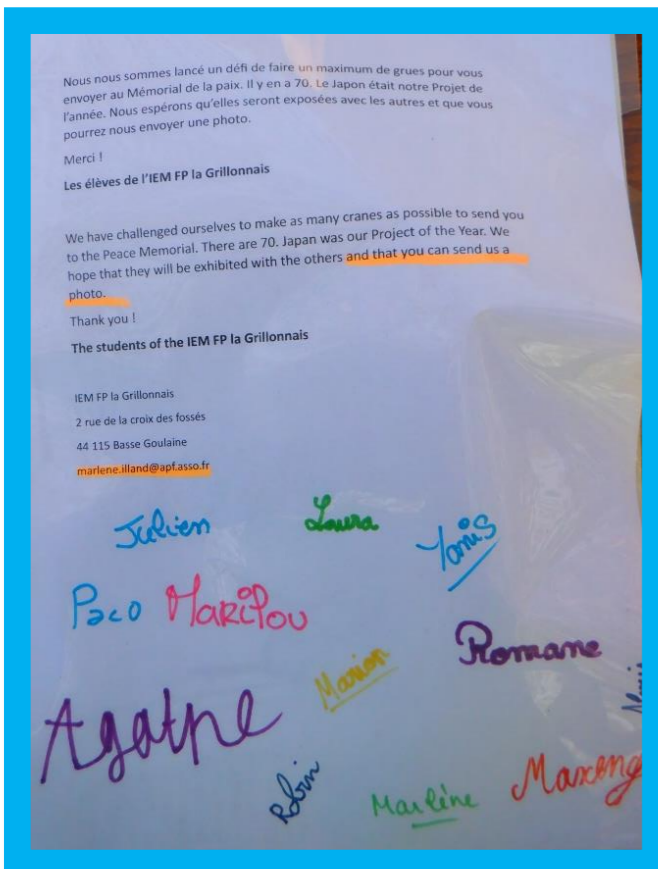 Nous nous sommes lancé un défi de faire un maximum de grues pour vous
envoyer au Mémorial de la paix. Il y en a 70. Le Japon était notre Projet de
l'année. Nous espérons qu'elles seront exposées avec les autres et que vous
pourrez nous envoyer une photo.
Merci !
Les élèves de l'IEM FP la Grillonnais
We have challenged ourselves to make as many cranes as possible to send you
to the Peace Memorial. There are 70. Japan was our Project of the Year. We
hope that they will be exhibited with the others and that you can send us a
photo.
Thank you !
The students of the IEM FP la Grillonnais
IEM FP la Grillonnais
2 rue de la croix des fossés
44 115 Basse Goulaine
marlene.illand@apf.asso.fr
Julien Laura Yanis
Paco Marilou
Romane
Marion
Agathe
Robin Marlène